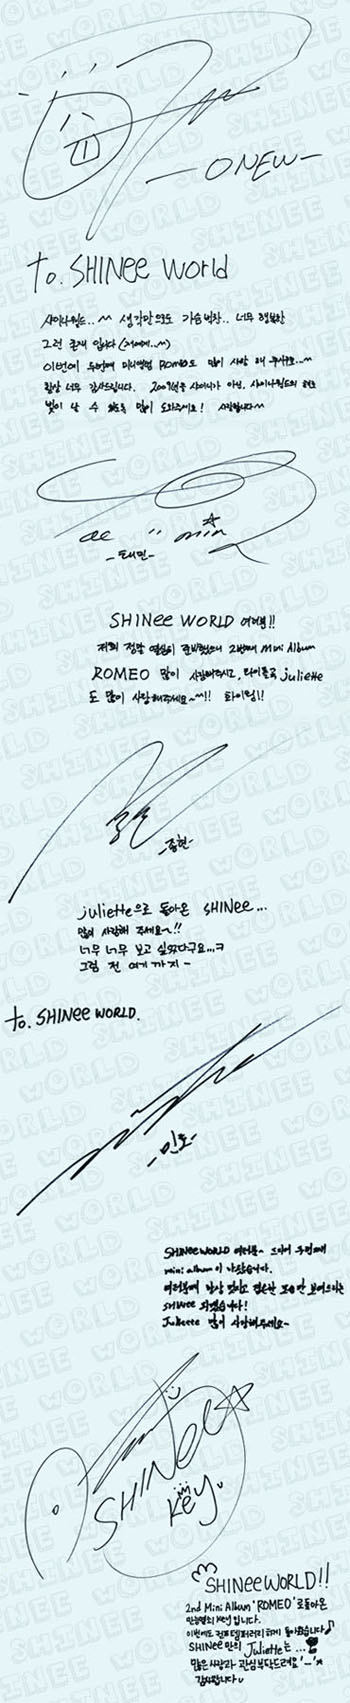 -ONEW-
to. SHINee World
샤이니월드..^^ 생각만해도 가슴벅찬.. 너무 행복한
그런 존재 입니다 (저에게..^^)
이번에 두번째 미니앨범 Romeo도 많이 사랑 해 주시구요..^^
항상 너무 감사드립니다. 2009년을 샤이니가 아닌, 샤이니월드의 해로
빛이 날 수 있도록 많이 도와주세요! 사랑합니다^^
ae min
-태민-
SHINee WORLD 여러분!!
저희 정말 열심히 준비했으니 2번째 Mini Album
ROMEO 많이 사랑해주시고, 타이틀곡 juliette
도 많이 사랑해주세요~^^!! 화이팅!!
-종현-
juliette으로 돌아온 SHINee...
많이 사랑해 주세요~!!
너무 너무 보고 싶었다구요...ㅋ
그럼 전 여기 까지 -
to. SHINee WORLD.
-민호-
SHINee WORLD 여러분~ 드디어 두번째
mini album이 나왔습니다.
여러분께 항상 멋지고 좋은 모습만 보여드리는
SHINee 되겠습니다!
Juliette 많이 사랑해주세요~
SHINee
Key
SHINee WORLD!!
2nd Mini Album 'ROMEO'로 돌아온
만능열쇠 KEY 입니다.
이번에도 컨템퍼러리하게 돌아왔습니다♪
SHINee 만의 Juliette는 ...
많은 사랑과 관심 부탁드려요 '-'*
감사합니다